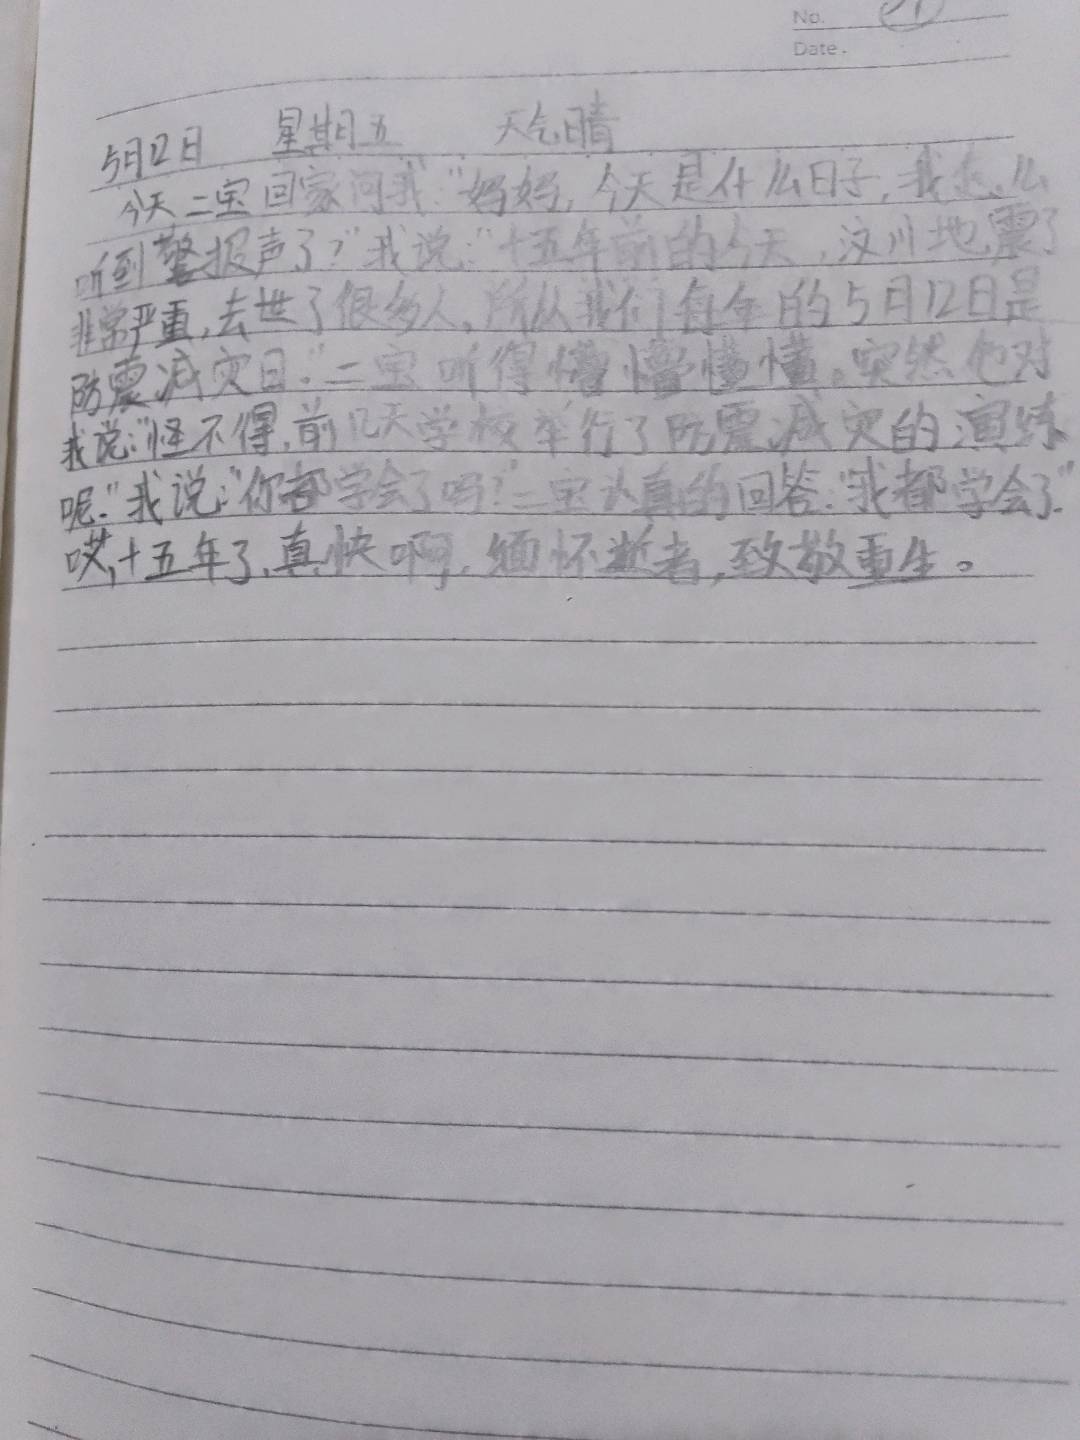 No.
Date.
5月12日 星期五 天气晴
今天二宝回家问我:"妈妈,今天是什么日子,我怎么
听到警报声了?"我说:"十五年前的今天,汶川地震了
非常严重,去世了很多人。所以我们每年的5月12日是
防震减灾日."二宝听得懵懵懂懂。突然他对
我说:"怪不得,前几天学校举行了防震减灾的演练
呢."我说:"你都学会了吗?"二宝认真的回答:"我都学会了."
哎,十五年了,真快啊,缅怀逝者,致敬重生。